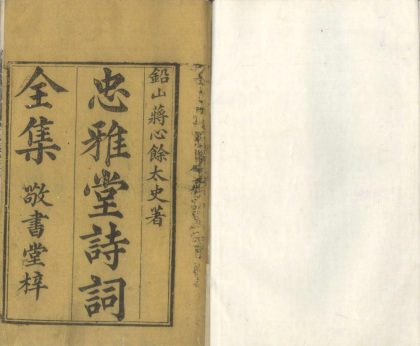 鉛山蔣心餘太史著
忠雅堂詩詞
全集 敬書堂梓